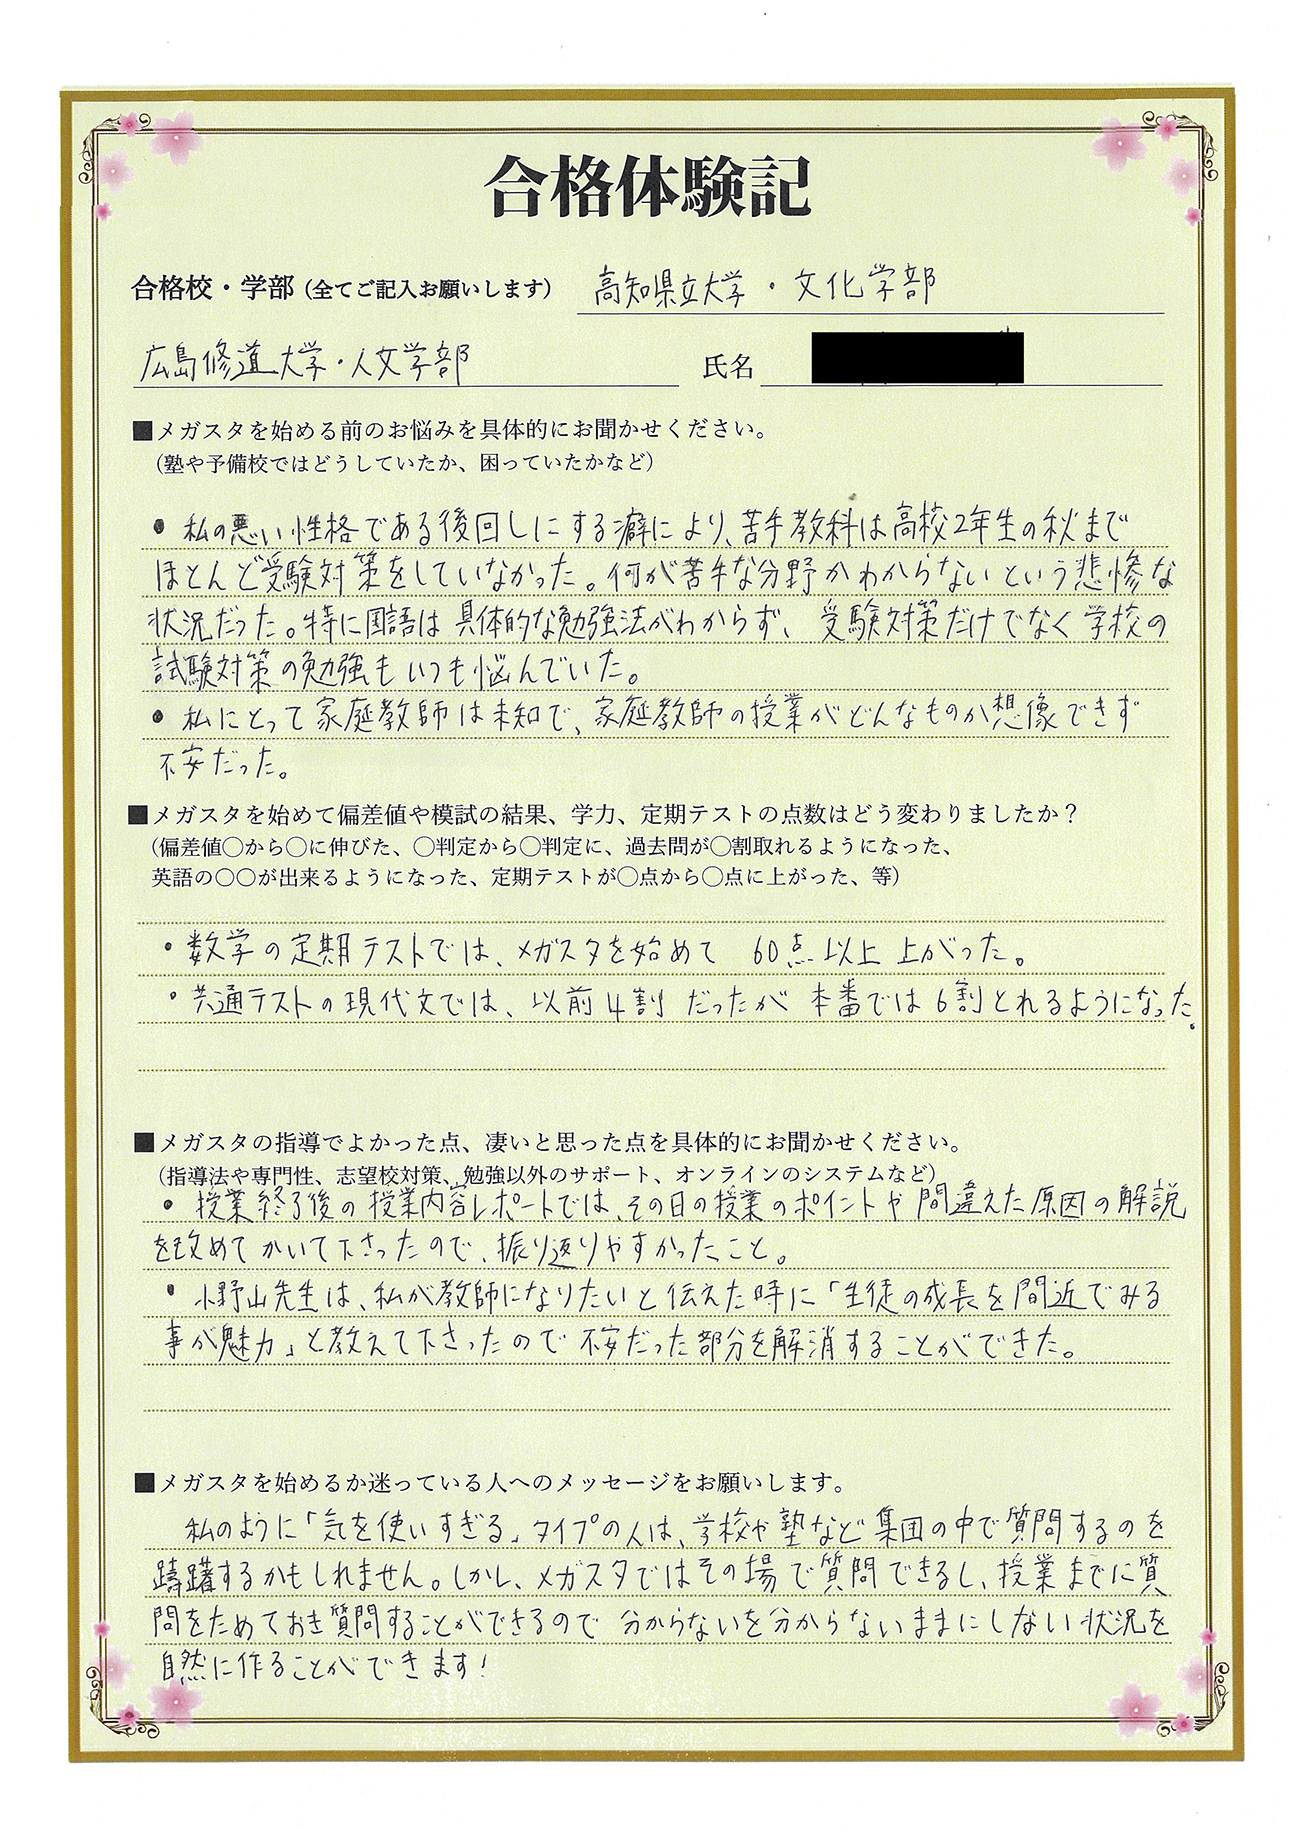 合格体験記
合格校・学部（全てご記入お願いします） 高知県立大学・文化学部
広島修道大学・人文学部 氏名
■メガスタを始める前のお悩みを具体的にお聞かせください。
（塾や予備校ではどうしていたか、困っていたかなど）
• 私の悪い性格である後回しにする癖により、苦手教科は高校2年生の秋まで
ほとんど受験対策をしていなかった。何が苦手な分野かわからないという悲惨な
状況だった。特に国語は具体的な勉強法がわからず、受験対策だけでなく学校の
試験対策の勉強もいつも悩んでいた。
• 私にとって家庭教師は未知で、家庭教師の授業がどんなものか想像できず
不安だった。
■メガスタを始めて偏差値や模試の結果、学力、定期テストの点数はどう変わりましたか？
（偏差値〇から〇に伸びた、〇判定から〇判定に、過去問が〇割取れるようになった、
英語の〇〇が出来るようになった、定期テストが〇点から〇点に上がった、等）
・数学の定期テストでは、メガスタを始めて 60点以上上がった。
・共通テストの現代文では、以前4割だったが本番では6割とれるようになった。
■メガスタの指導でよかった点、凄いと思った点を具体的にお聞かせください。
（指導法や専門性、志望校対策、勉強以外のサポート、オンラインのシステムなど）
• 授業終了後の授業内容レポートでは、その日の授業のポイントや間違えた原因の解説
を改めてかいて下さったので、振り返りやすかったこと。
• 小野山先生は、私が教師になりたいと伝えた時に「生徒の成長を間近でみる
事が魅力」と教えて下さったので不安だった部分を解消することができた。
■メガスタを始めるか迷っている人へのメッセージをお願いします。
私のように「気を使いすぎる」タイプの人は、学校や塾など集団の中で質問するのを
躊躇するかもしれません。しかし、メガスタではその場で質問できるし、授業までに質
問をためておき質問することができるので分からないを分からないままにしない状況を
自然に作ることができます！